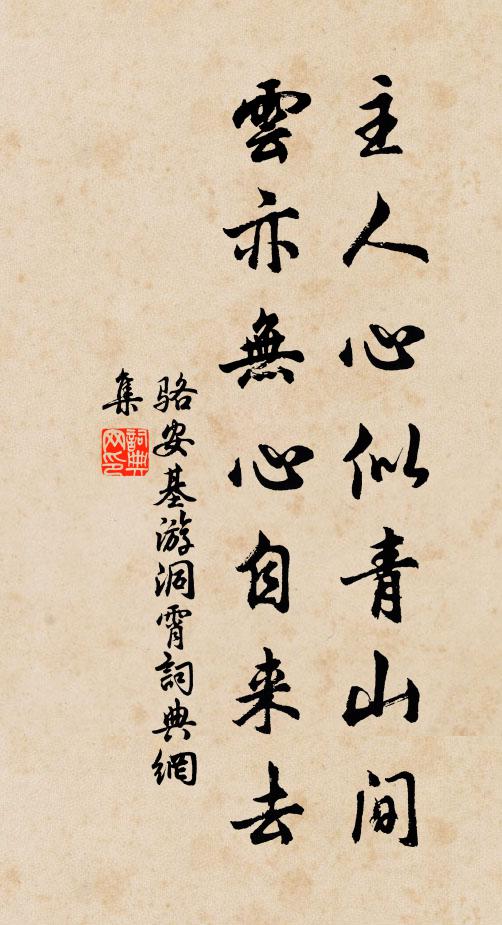 主人心似青山间
雲亦無心自来去
骆安基游洞霄詞典網
集
詞典
网印